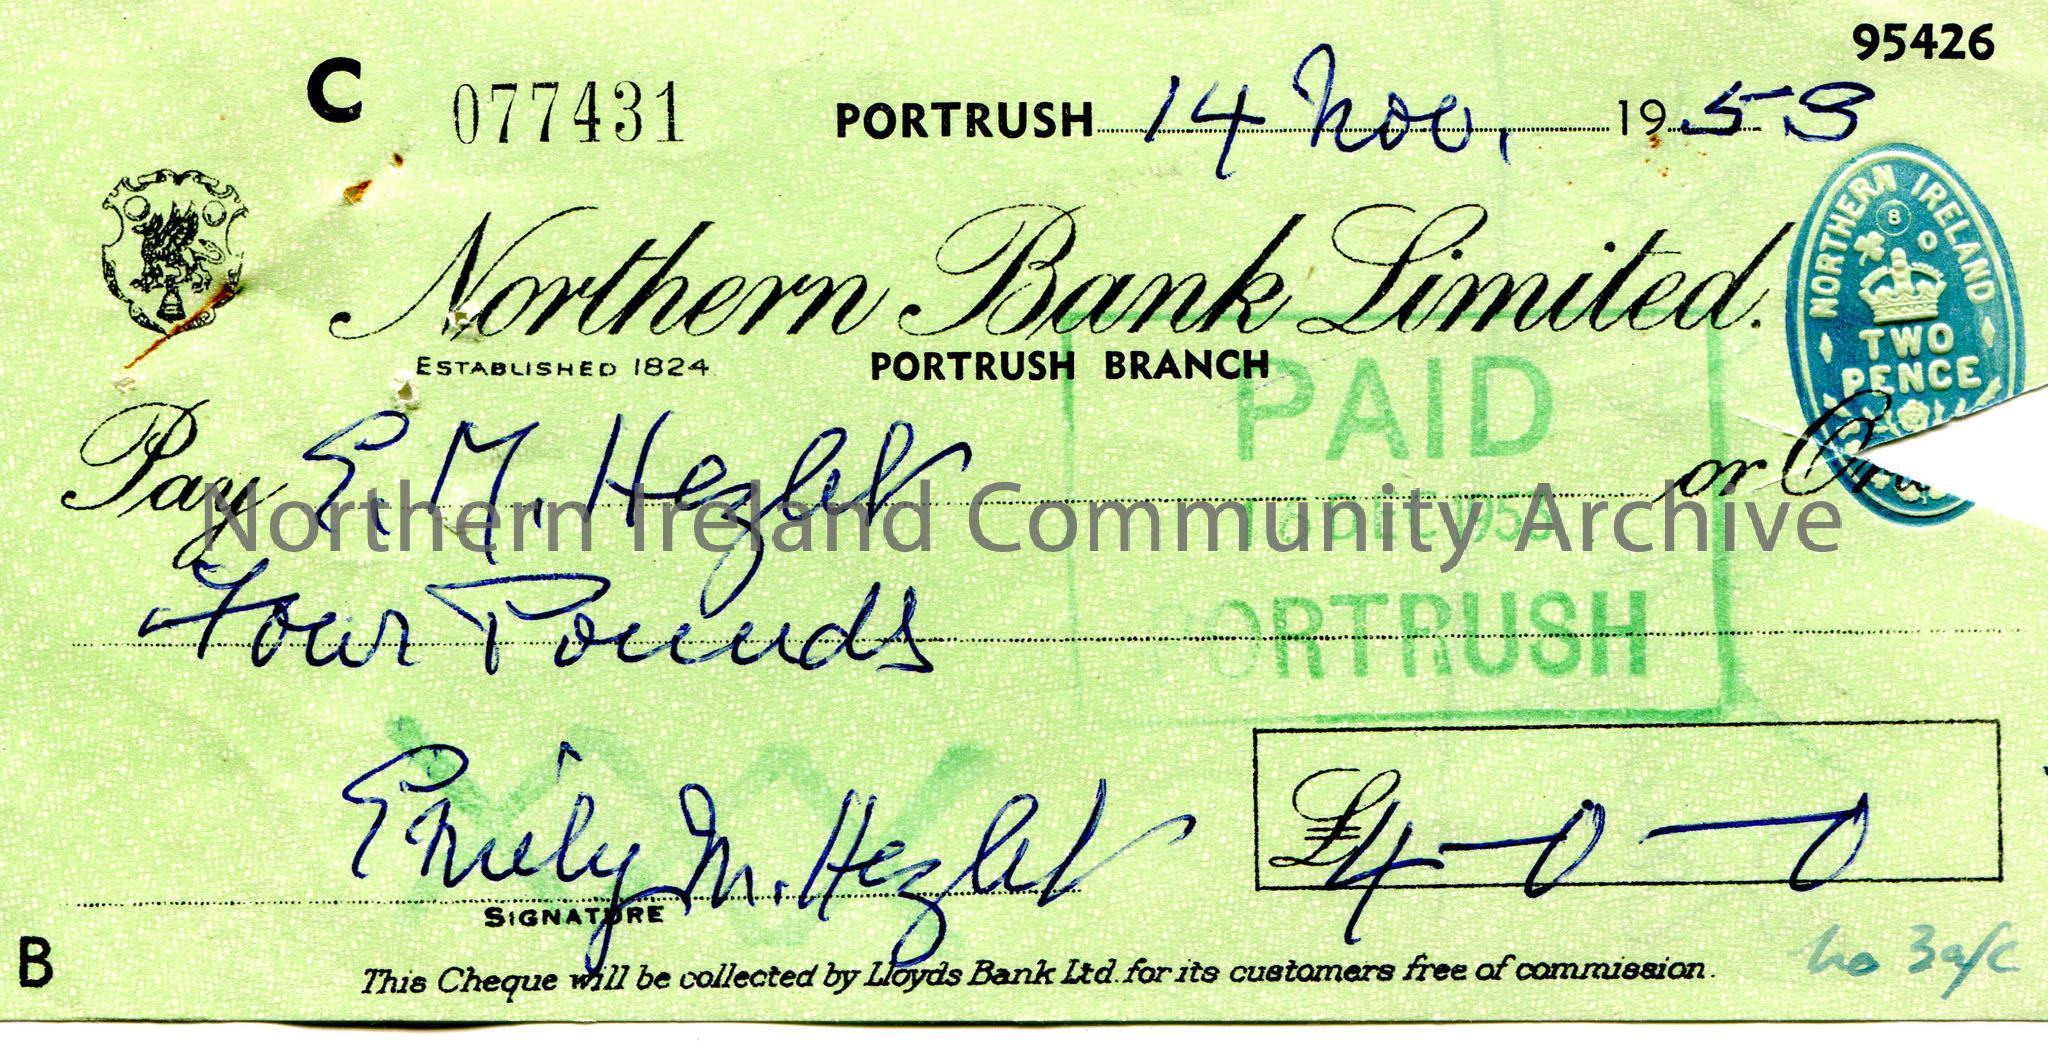 95426
C 077431 PORTRUSH 14 Nov. 1953
Northern Bank Limited.
ESTABLISHED 1824 PORTRUSH BRANCH
NORTHERN IRELAND
8
0
TWO
PENCE
PAID
PORTRUSH
Pay E. M. Hezlet or
Northern Ireland Community Archive
Four Pounds
Emily M. Hezlet £4-0-0
SIGNATURE
No 3 a/c
B This Cheque will be collected by Lloyds Bank Ltd. for its customers free of commission.